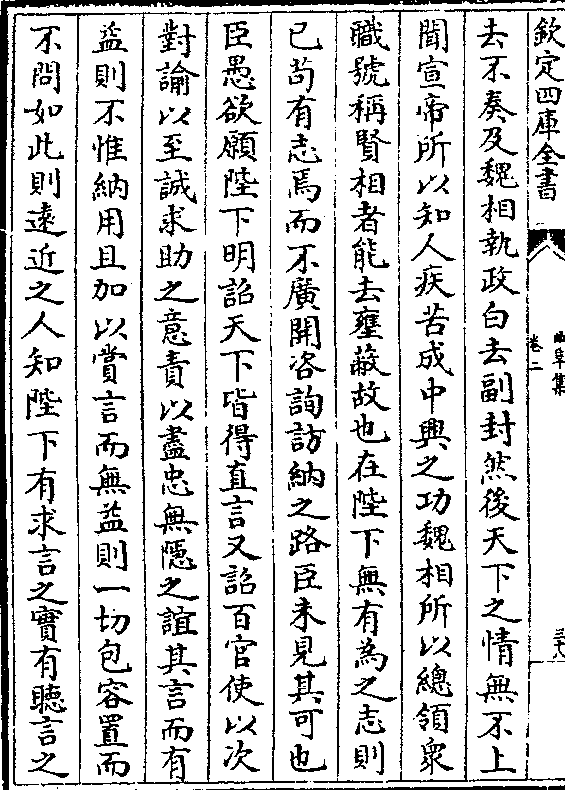 欽定四庫全書
曲阜集
卷二
三十八
去不奏及魏相執政白去副封然後天下之情無不上
聞宣帝所以知人疾苦成中興之功魏相所以總領衆
職號稱賢相者能去壅蔽故也在陛下無有為之志則
已茍有志焉而不廣開咨詢訪納之路臣未見其可也
臣愚欲願陛下明詔天下皆得直言又詔百官使以次
對諭以至誠求助之意責以盡忠無隱之誼其言而有
益則不惟納用且加以賞言而無益則一切包容置而
不問如此則遠近之人知陛下有求言之實有聽言之